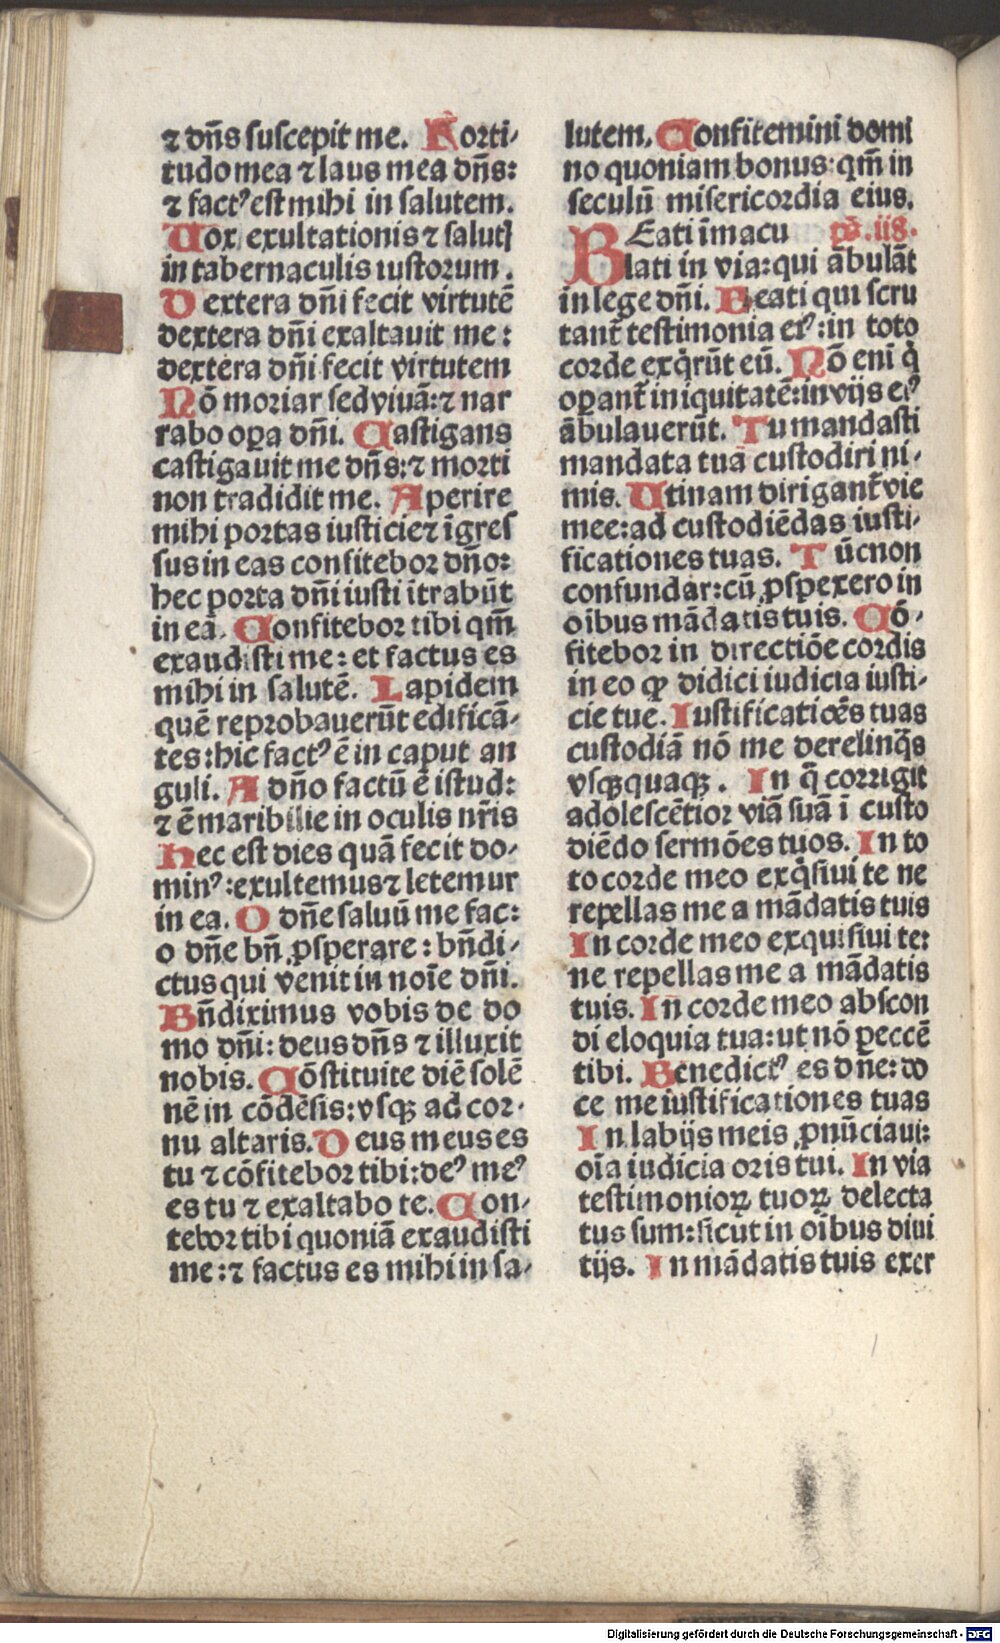 ⁊ dn̄s suscepit me. Forti⸗
tudo mea ⁊ laus mea dn̄s:
⁊ factꝰ est mihi in salutem.
Uox exultationis ⁊ salutꝭ
in tabernaculis iustorum.
Dextera dn̄i fecit virtutē
dextera dn̄i exaltauit me:
dextera dn̄i fecit virtutem
Nō moriar sed viuā: ⁊ nar
rabo oꝑa dn̄i. Castigans
castigauit me dn̄s: ⁊ morti
non tradidit me. Aperire
mihi portas iusticie ⁊ īgres
sus in eas confitebor dn̄o:
hec porta dn̄i iusti ītrabūt
in eā. Confitebor tibi qm̄
exaudisti me: et factus es
mihi in salutē. Lapidem
quē reprobauerūt edificā⸗
tes: hic factꝰ ē in caput an
guli. A dn̄o factū ē istud:
⁊ ē maribilie in oculis nr̄is
Hec est dies quā fecit do⸗
minꝰ: exultemus ⁊ letemur
in ea. O dn̄e saluū me fac:
o dn̄e bn̄ ꝓsperare: bn̄di⸗
ctus qui venit in noīe dn̄i.
Bn̄diximus vobis de do
mo dn̄i: deus dn̄s ⁊ illuxit
nobis. Cōstituite diē solē
nē in cōdēsis: vsqꝫ ad cor⸗
nu altaris. Deus meus es
tu ⁊ cōfitebor tibi: deꝰ meꝰ
es tu ⁊ exaltabo te. Con⸗
tebor tibi quoniā exaudisti
me: ⁊ factus es mihi in sa⸗
lutem. Confitemini domi
no quoniam bonus: qm̄ in
seculū misericordia eius.
BEati īmacu
lati in via: qui ābulāt
in lege dn̄i. Beati qui scru
tant̄ testimonia eiꝰ: in toto
corde exq̇rūt eū. Nō eni q̇
oꝑant̄ iniquitatē: in vijs eiꝰ
ābulauerūt. Tu mandasti
mandata tua custodiri ni⸗
mis. Utinam dirigant̄ vie
mee: ad custodiēdas iusti⸗
ficationes tuas. Tūc non
confundar: cū ꝓspexero in
oībus mādatis tuis. Cō⸗
fitebor in directiōe cordis
in eo ꝙ didici iudicia iusti⸗
cie tue. Iustificatiōes tuas
custodiā nō me derelinq̄s
vsqꝫquaqꝫ. In q̄ corrigit
adolescētior viā suā ī custo
diēdo sermōes tuos. In to
to corde meo exq̇siui te ne
repellas me a mādatis tuis
In corde meo exquisiui te:
ne repellas me a mādatis
tuis. In corde meo abscon
di eloquia tua: ut nō peccē
tibi. Benedictꝰ es dn̄e: do
ce me iustificationes tuas
In labijs meis ꝓnūciaui:
oīa iudicia oris tui. In via
testimonioꝝ tuoꝝ delecta
tus sum: sicut in oībus diui
tijs. In mādatis tuis exer
Digitalisierung gefördert durch die Deutsche Forschungsgemeinschaft - DFG